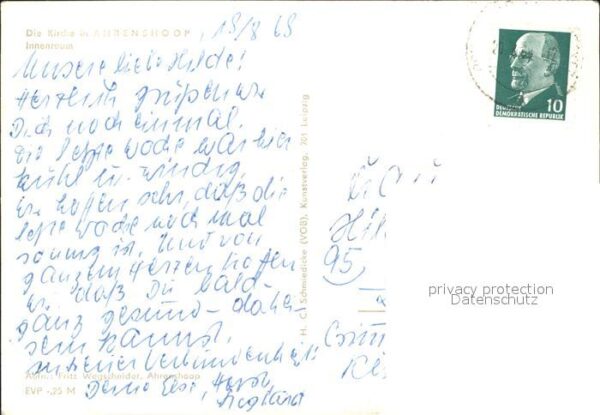 Die Kirche in AHRENSHOOP, 19/8 69
Innenraum
Unsere liebe Hilde!
Herzlich grüßen wir
Dich noch einmal.
Die letzte Woche war hier
kühl u. windig,
wir hoffen sehr, daß die
letzte Woche noch mal
sonnig ist. Und von
ganzem Herzen hoffen
wir, daß Du bald
ganz gesund – daheim
sein kannst.
In treuer Verbundenheit
Deine Else,
Aufn.: Fritz Wegscheider, Ahrenshoop
EVP -,25 M
H. C. Schmiedicke (VOB), Kunstverlag, 701 Leipzig
10
DEUTSCHE
DEMOKRATISCHE REPUBLIK
95
privacy protection
Datenschutz